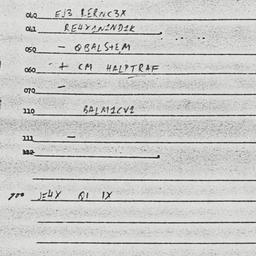 040 EJ3 RERNC3X
041 RE4X1N1ND1K
050 - QBALSTEM
060 + CM HALPTRAF
070 -
110 BALM1CV1
111 -
700 JE4X Q1 1X